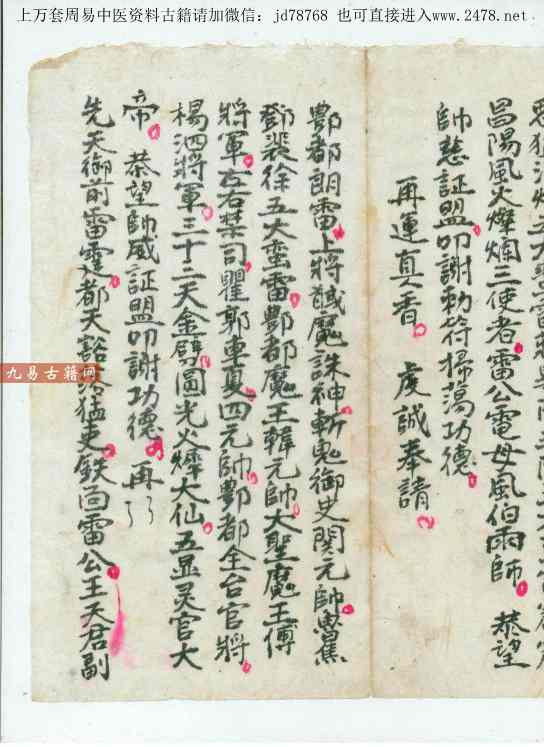 上万套周易中医资料古籍请加微信：jd78768 也可直接进入www.2478.net.
昌陽風火燦爛三使者雷公電母風伯雨師 恭望
帥慈証盟叩謝勅符掃蕩功德
再運真香 虔誠奉請
酆都朗雷上將馘魔誅神斬鬼御史関元帥魯焦
鄧裴徐五大蛮雷酆都魔王韓元帥大聖魔王傅
將軍左右禁司瞿郭車夏四元帥酆都全台官將
楊泗將軍三十二天金劈圓光火煇大仙五显灵官大
帝 恭望帥威証盟叩謝功德 再
先天御前雷霆都天豁落猛吏鉄面雷公王天君副
九易古籍网